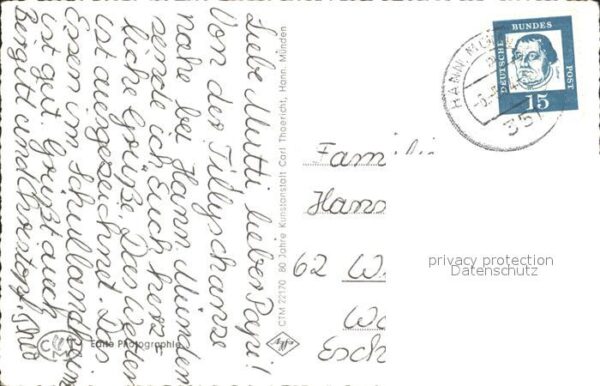 Liebe Mutti, lieber Papi!
Von der Tillyschanze
nahe bei Hann. Münden
sende ich Euch herz-
liche Grüße. Das Wetter
ist ausgezeichnet. Das
Essen im Schullandheim
ist gut. Grüßt auch
Bergitt und Christoph.
CTM 22170 80 Jahre Kunstanstalt Carl Thoericht, Hann. Münden
Echte Photographie
Agfa
HANN. MÜ
35
DEUTSCHE BUNDES POST
15
Famili
Hans
62 W
Wa
Esch
privacy protection
Datenschutz